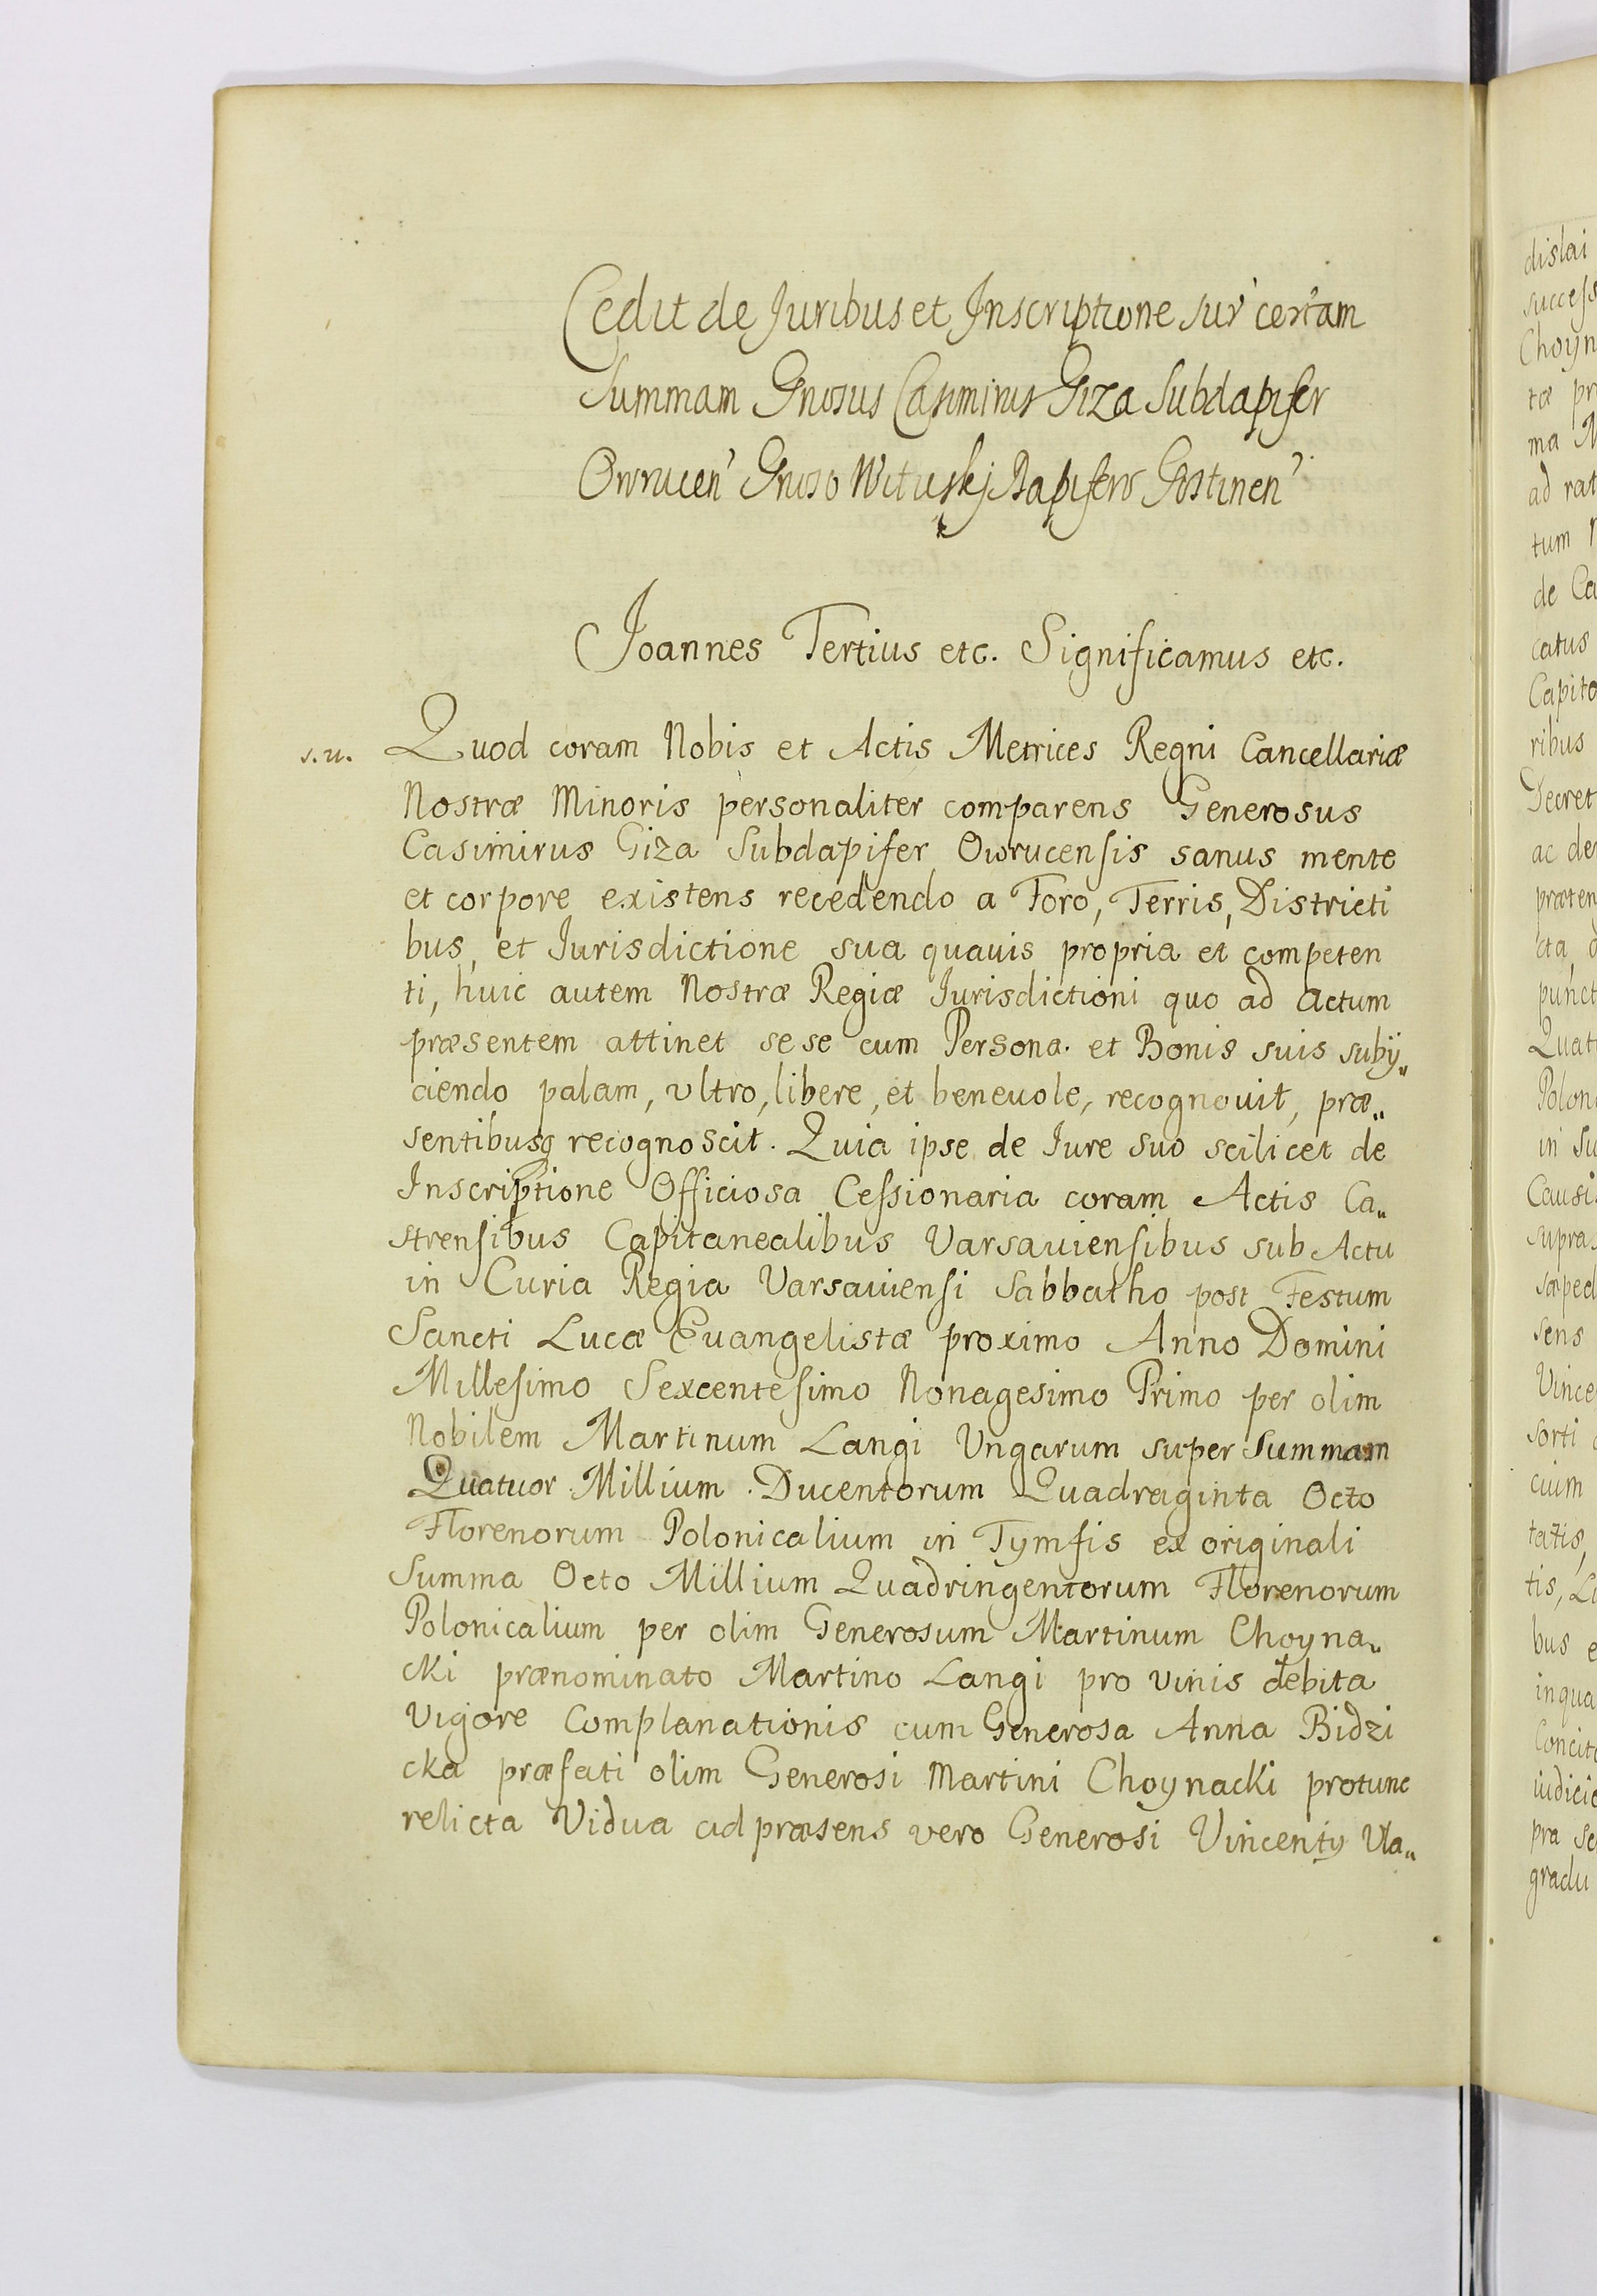 Cedit de Juribus et Inscriptione sur' certam
Summam Gnosus Casimirus Giza Subdapifer
Owrucen' Gnoso Wituskj Dapifero Gostinen'
Joannes Tertius etc. Significamus etc.
s.u. Quod coram Nobis et Actis Metrices Regni Cancellariæ
Nostræ Minoris personaliter comparens Generosus
Casimirus Giza Subdapifer Owrucensis sanus mente
et corpore existens recedendo a Foro, Terris, Districti
bus, et Iurisdictione sua quauis propria et competen
ti, huic autem Nostræ Regiæ Iurisdictioni quo ad actum
præsentem attinet sese cum Persona. et Bonis suis subij„
ciendo palam, vltro, libere, et beneuole, recognouit, præ„
sentibusq recognoscit. Quia ipse de Iure suo scilicet de
Inscriptione Officiosa Cessionaria coram Actis Ca„
strensibus Capitanealibus Varsauiensibus sub Actu
in Curia Regia Varsauiensi Sabbatho post Festum
Sancti Lucæ Euangelistæ proximo Anno Domini
Millesimo Sexcentesimo Nonagesimo Primo per olim
Nobilem Martinum Langi Vngarum super Summam
Quatuor Millium Ducentorum Quadraginta Octo
Florenorum Polonicalium in Tymfis ex originali
Summa Octo Millium Quadringentorum Florenorum
Polonicalium per olim Generosum Martinum Choyna„
cki prænominato Martino Langi pro vinis debita
vigore Complanationis cum Generosa Anna Bidzi
cka præfati olim Generosi Martini Choynacki protunc
relicta Vidua ad præsens vero Generosi Vincentij Vla„
dislai
success
Choyn
tæ pr
ma M
ad rat
tum
de Ca
catus
Capita
ribus
Decret
ac de
præten
cta,
punct
Quat
Polon
in Su
Causi
supra
sæped
sens
Vince
sorti
cium
tatis,
tis, Li
bus e
inqua
Concit
iudicio
pra se
gradu